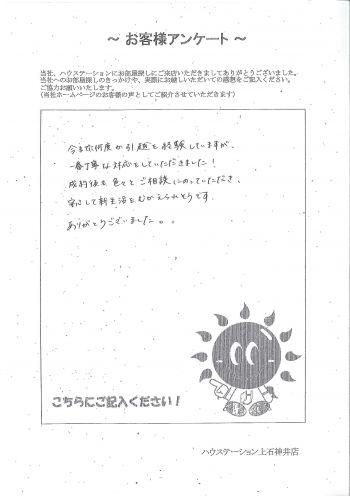 ～ お客様アンケート ～
当社、ハウステーションにお部屋探しにご来店いただきましてありがとうございました。
当社へのお部屋探しのきっかけや、実際にお越しいただいての感想をご記入ください。
ご協力お願いいたします。
(当社ホームページのお客様の声としてご紹介させていただきます)
今まで何度か引越を経験していますが、
一番丁寧な対応をしていただきました！
成約後も色々とご相談にのっていただき、
安心して新生活をむかえられそうです。
ありがとうございました。
こちらにご記入ください！
ハウステーション上石神井店